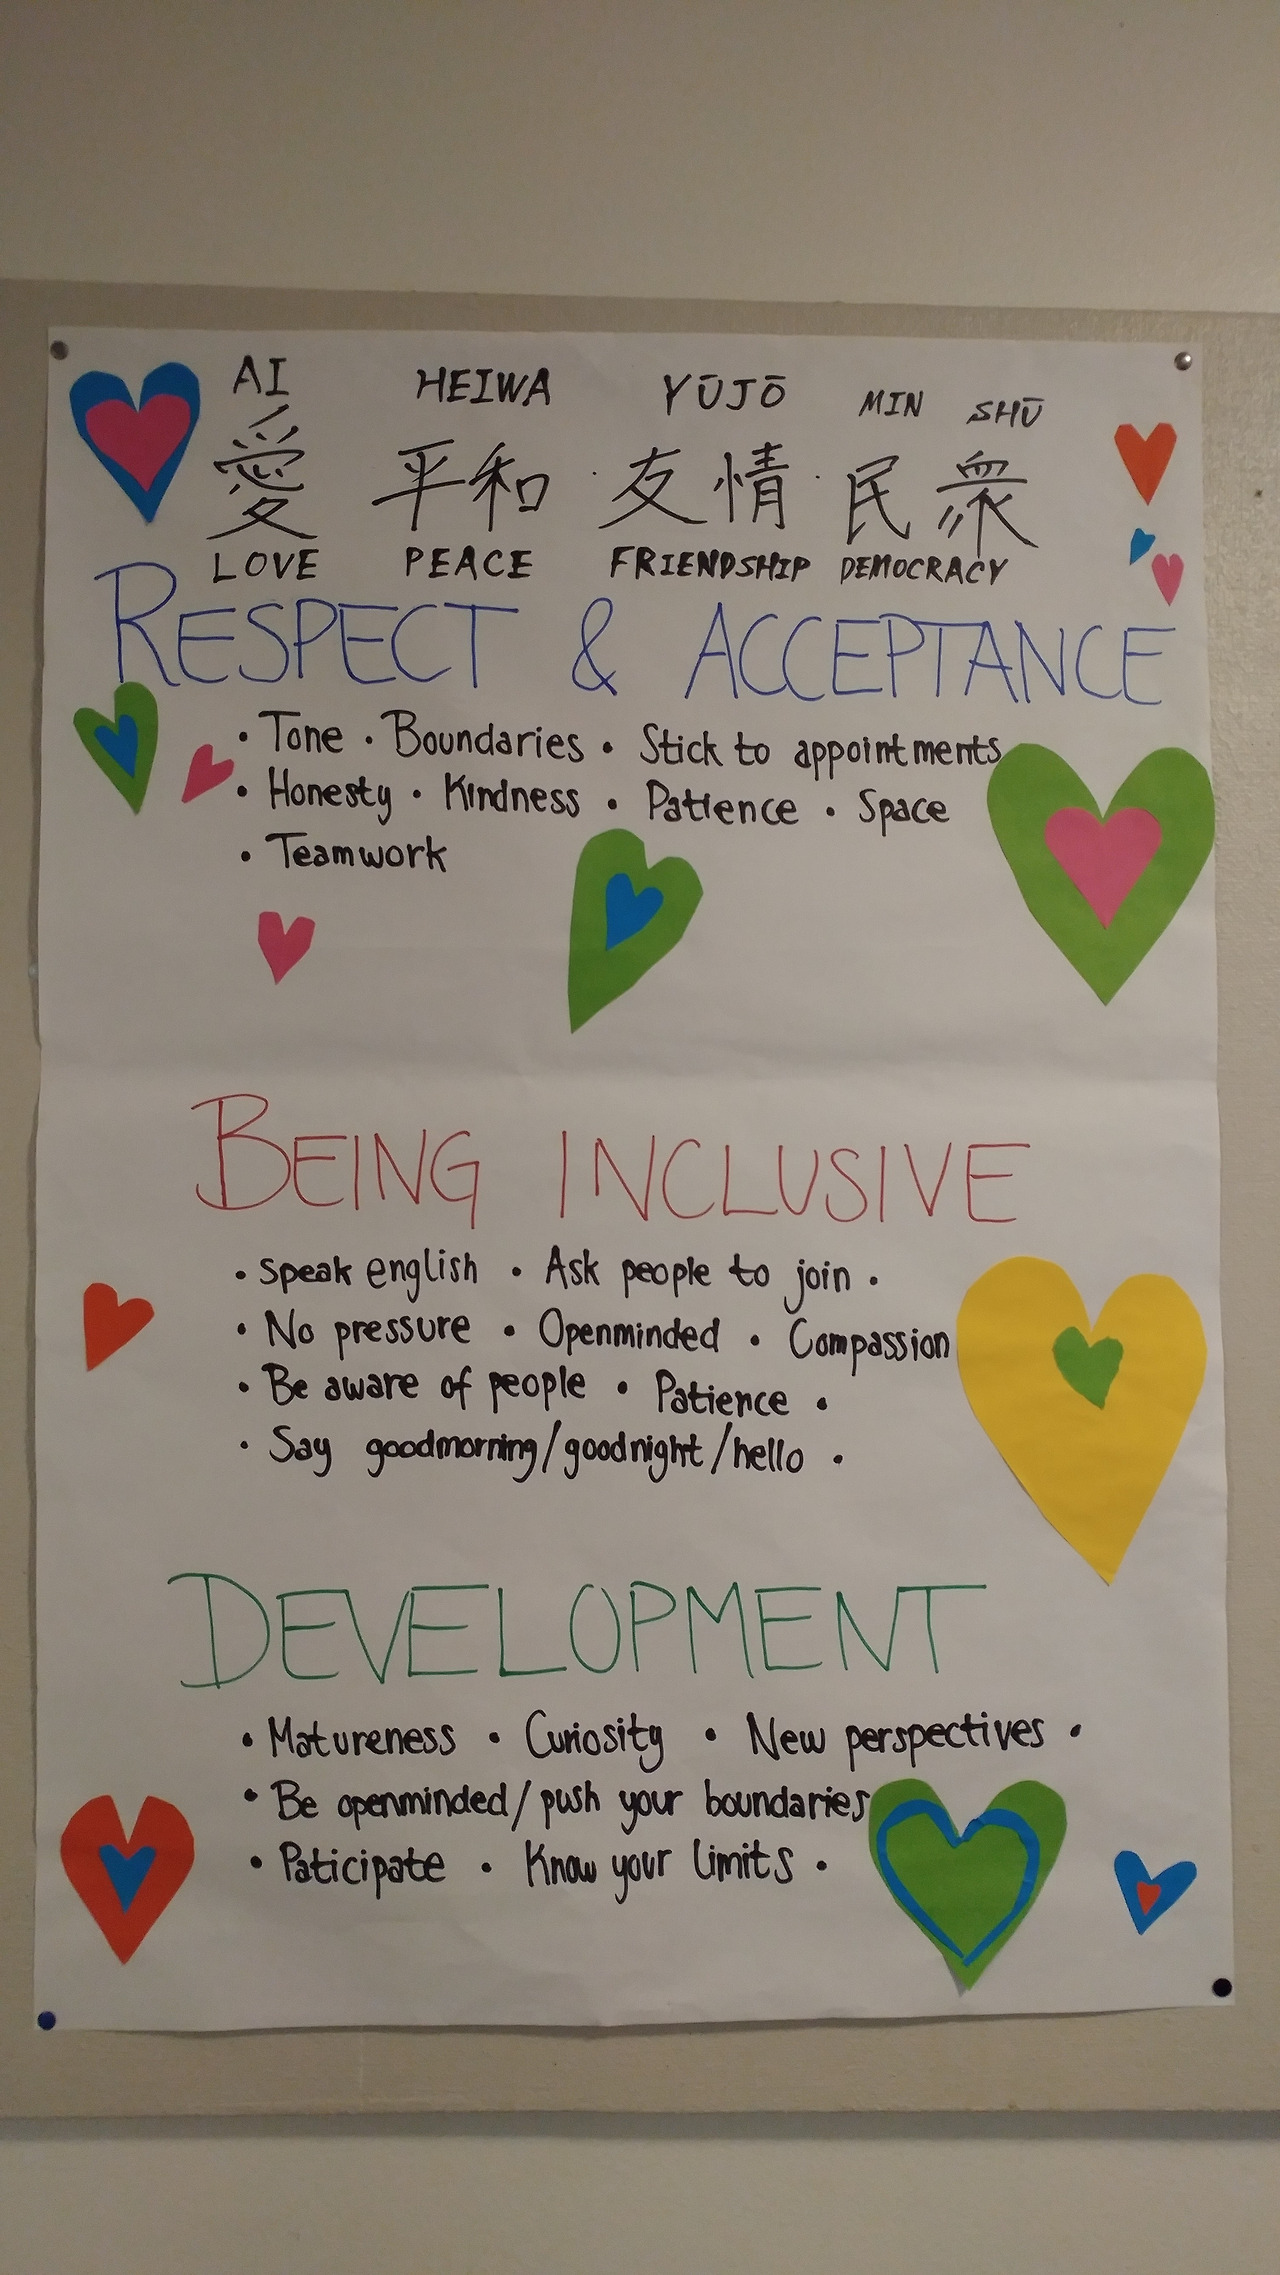 AI HEIWA YŪJŌ MIN SHŪ
愛 平和 · 友情 · 民衆
LOVE PEACE FRIENDSHIP DEMOCRACY
RESPECT & ACCEPTANCE
• Tone • Boundaries • Stick to appointments
• Honesty • Kindness • Patience • Space
• Teamwork
BEING INCLUSIVE
• speak english • Ask people to join •
• No pressure • Openminded • Compassion
• Be aware of people • Patience •
• Say goodmorning/goodnight/hello •
DEVELOPMENT
• Matureness • Curiosity • New perspectives •
• Be openminded/push your boundaries
• Paticipate • Know your limits •